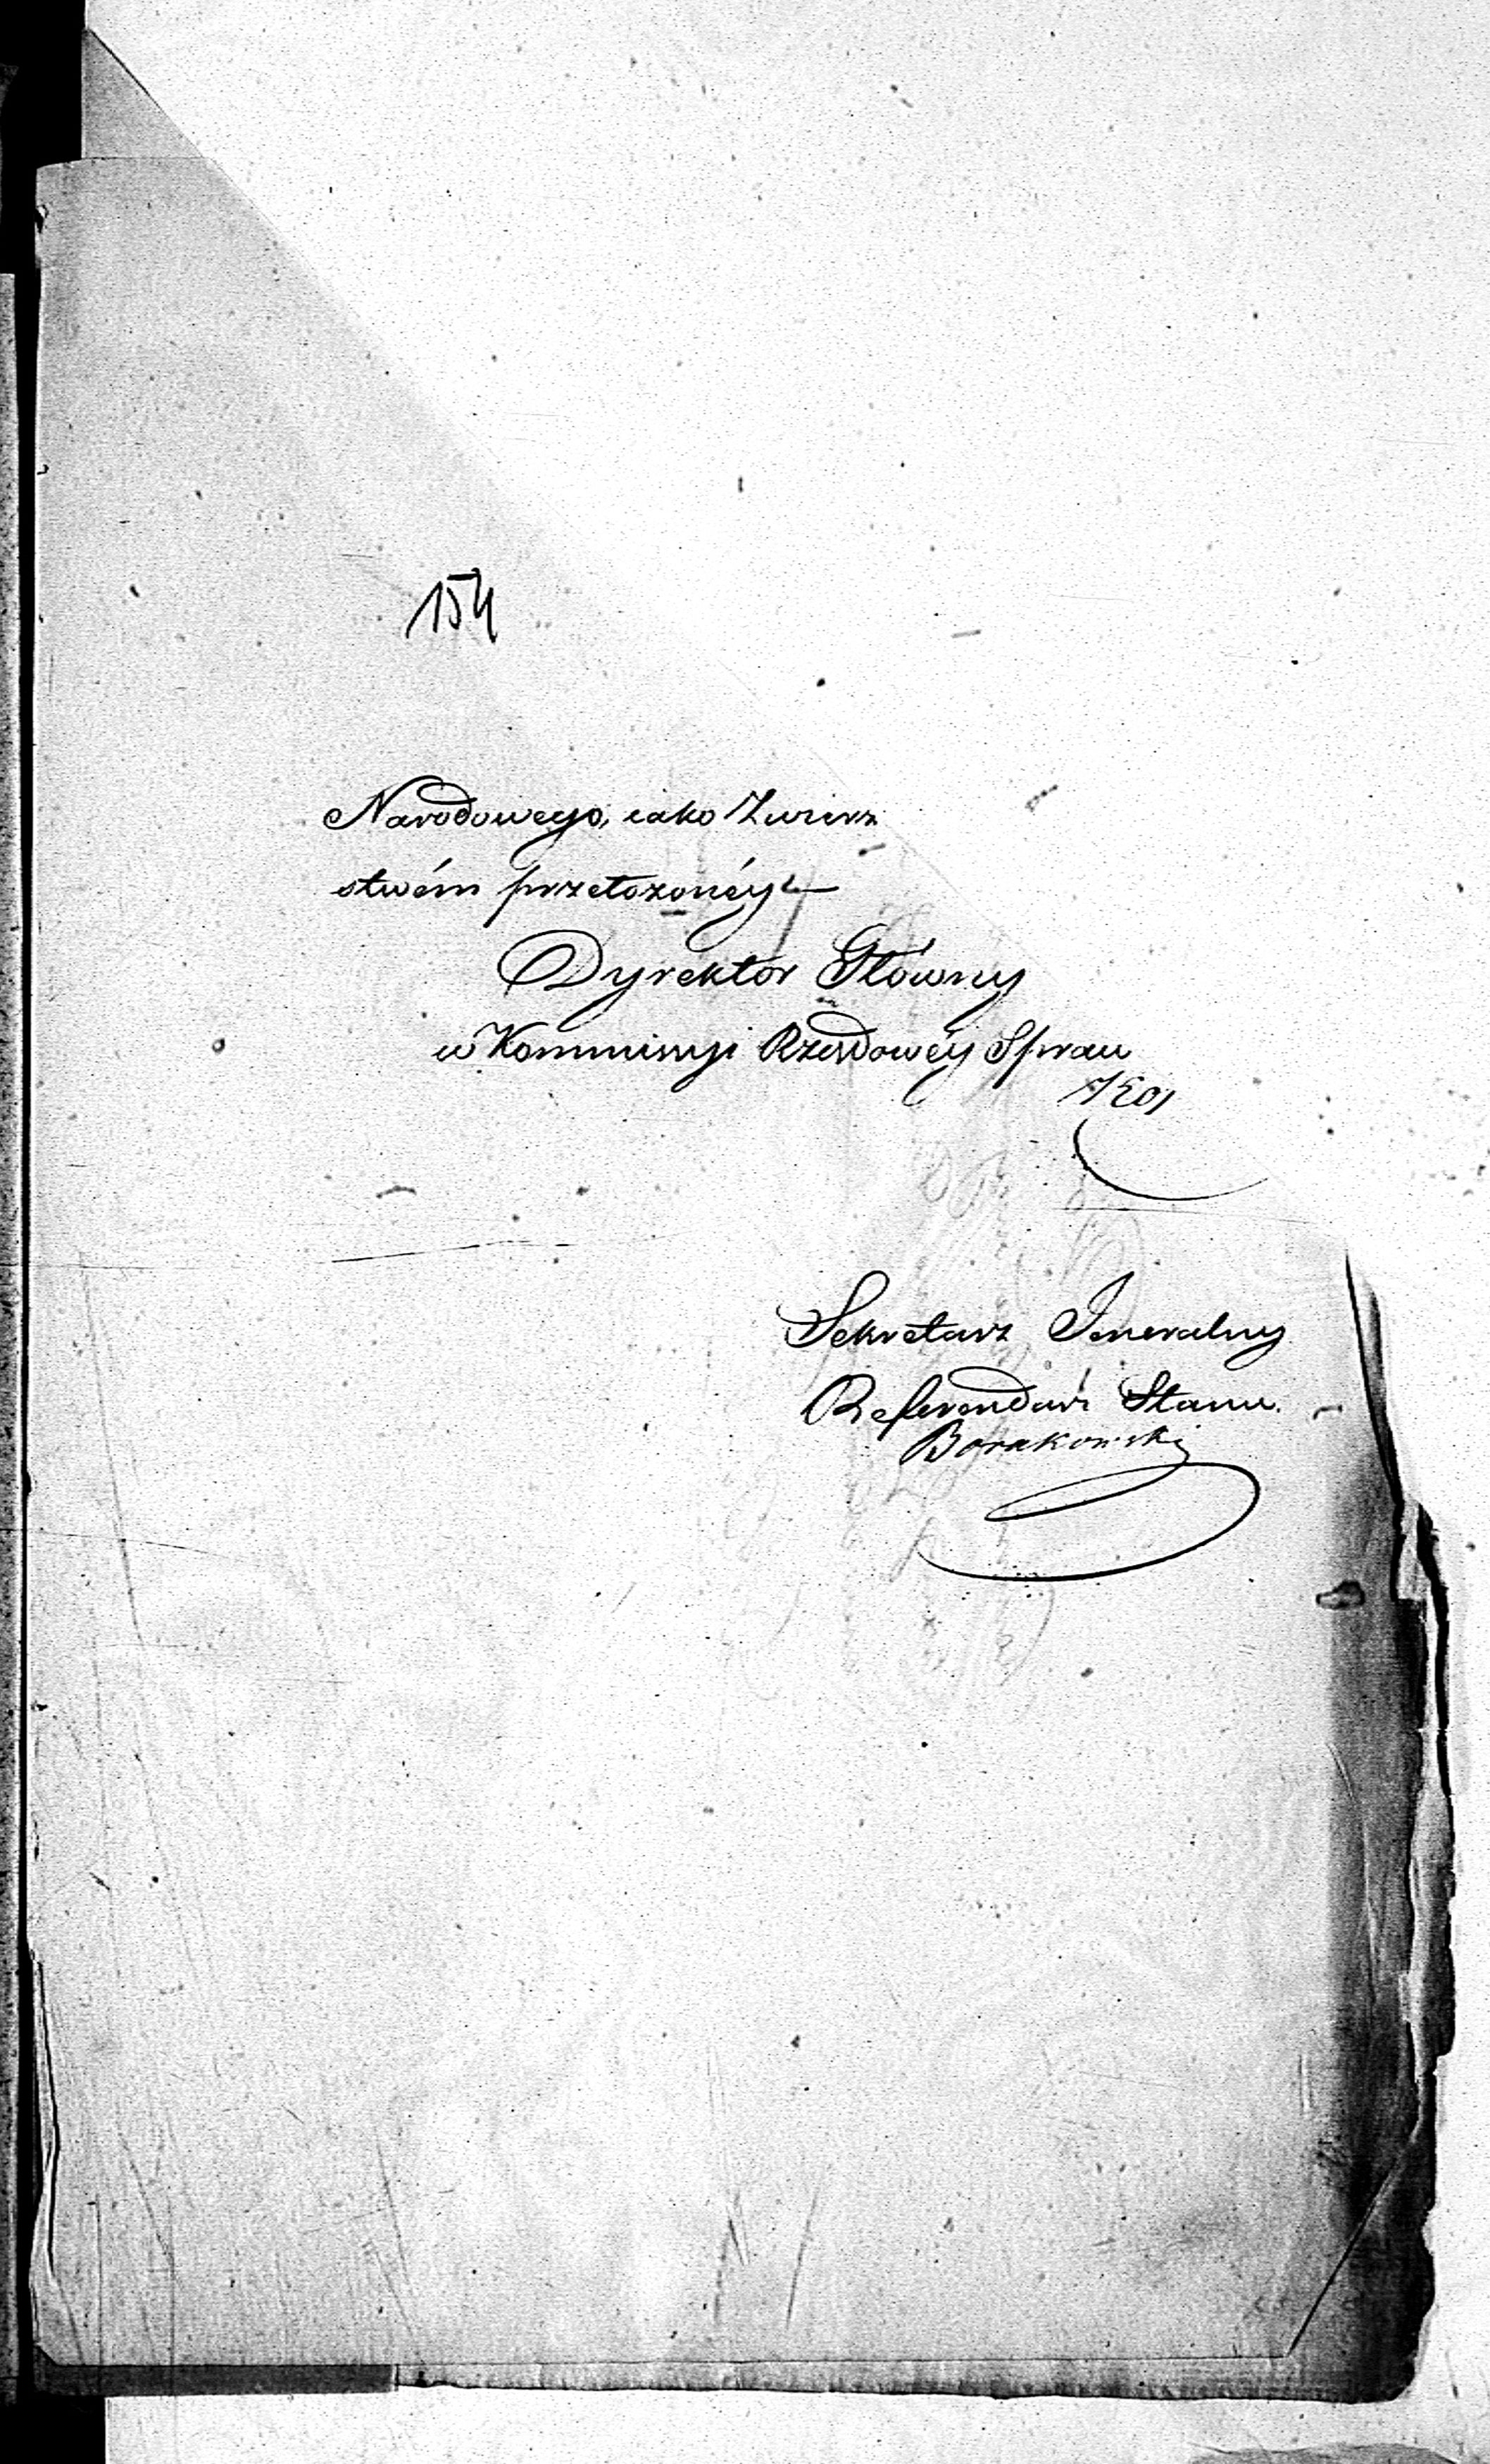 154
Narodowego, iako Zwierz
stwém przełożonéy
Dyrektor Główny
w Kommissyi Rządowéy Spraw
Sekretarz Jeneralny
Referendarz Stanu.
Borakowski